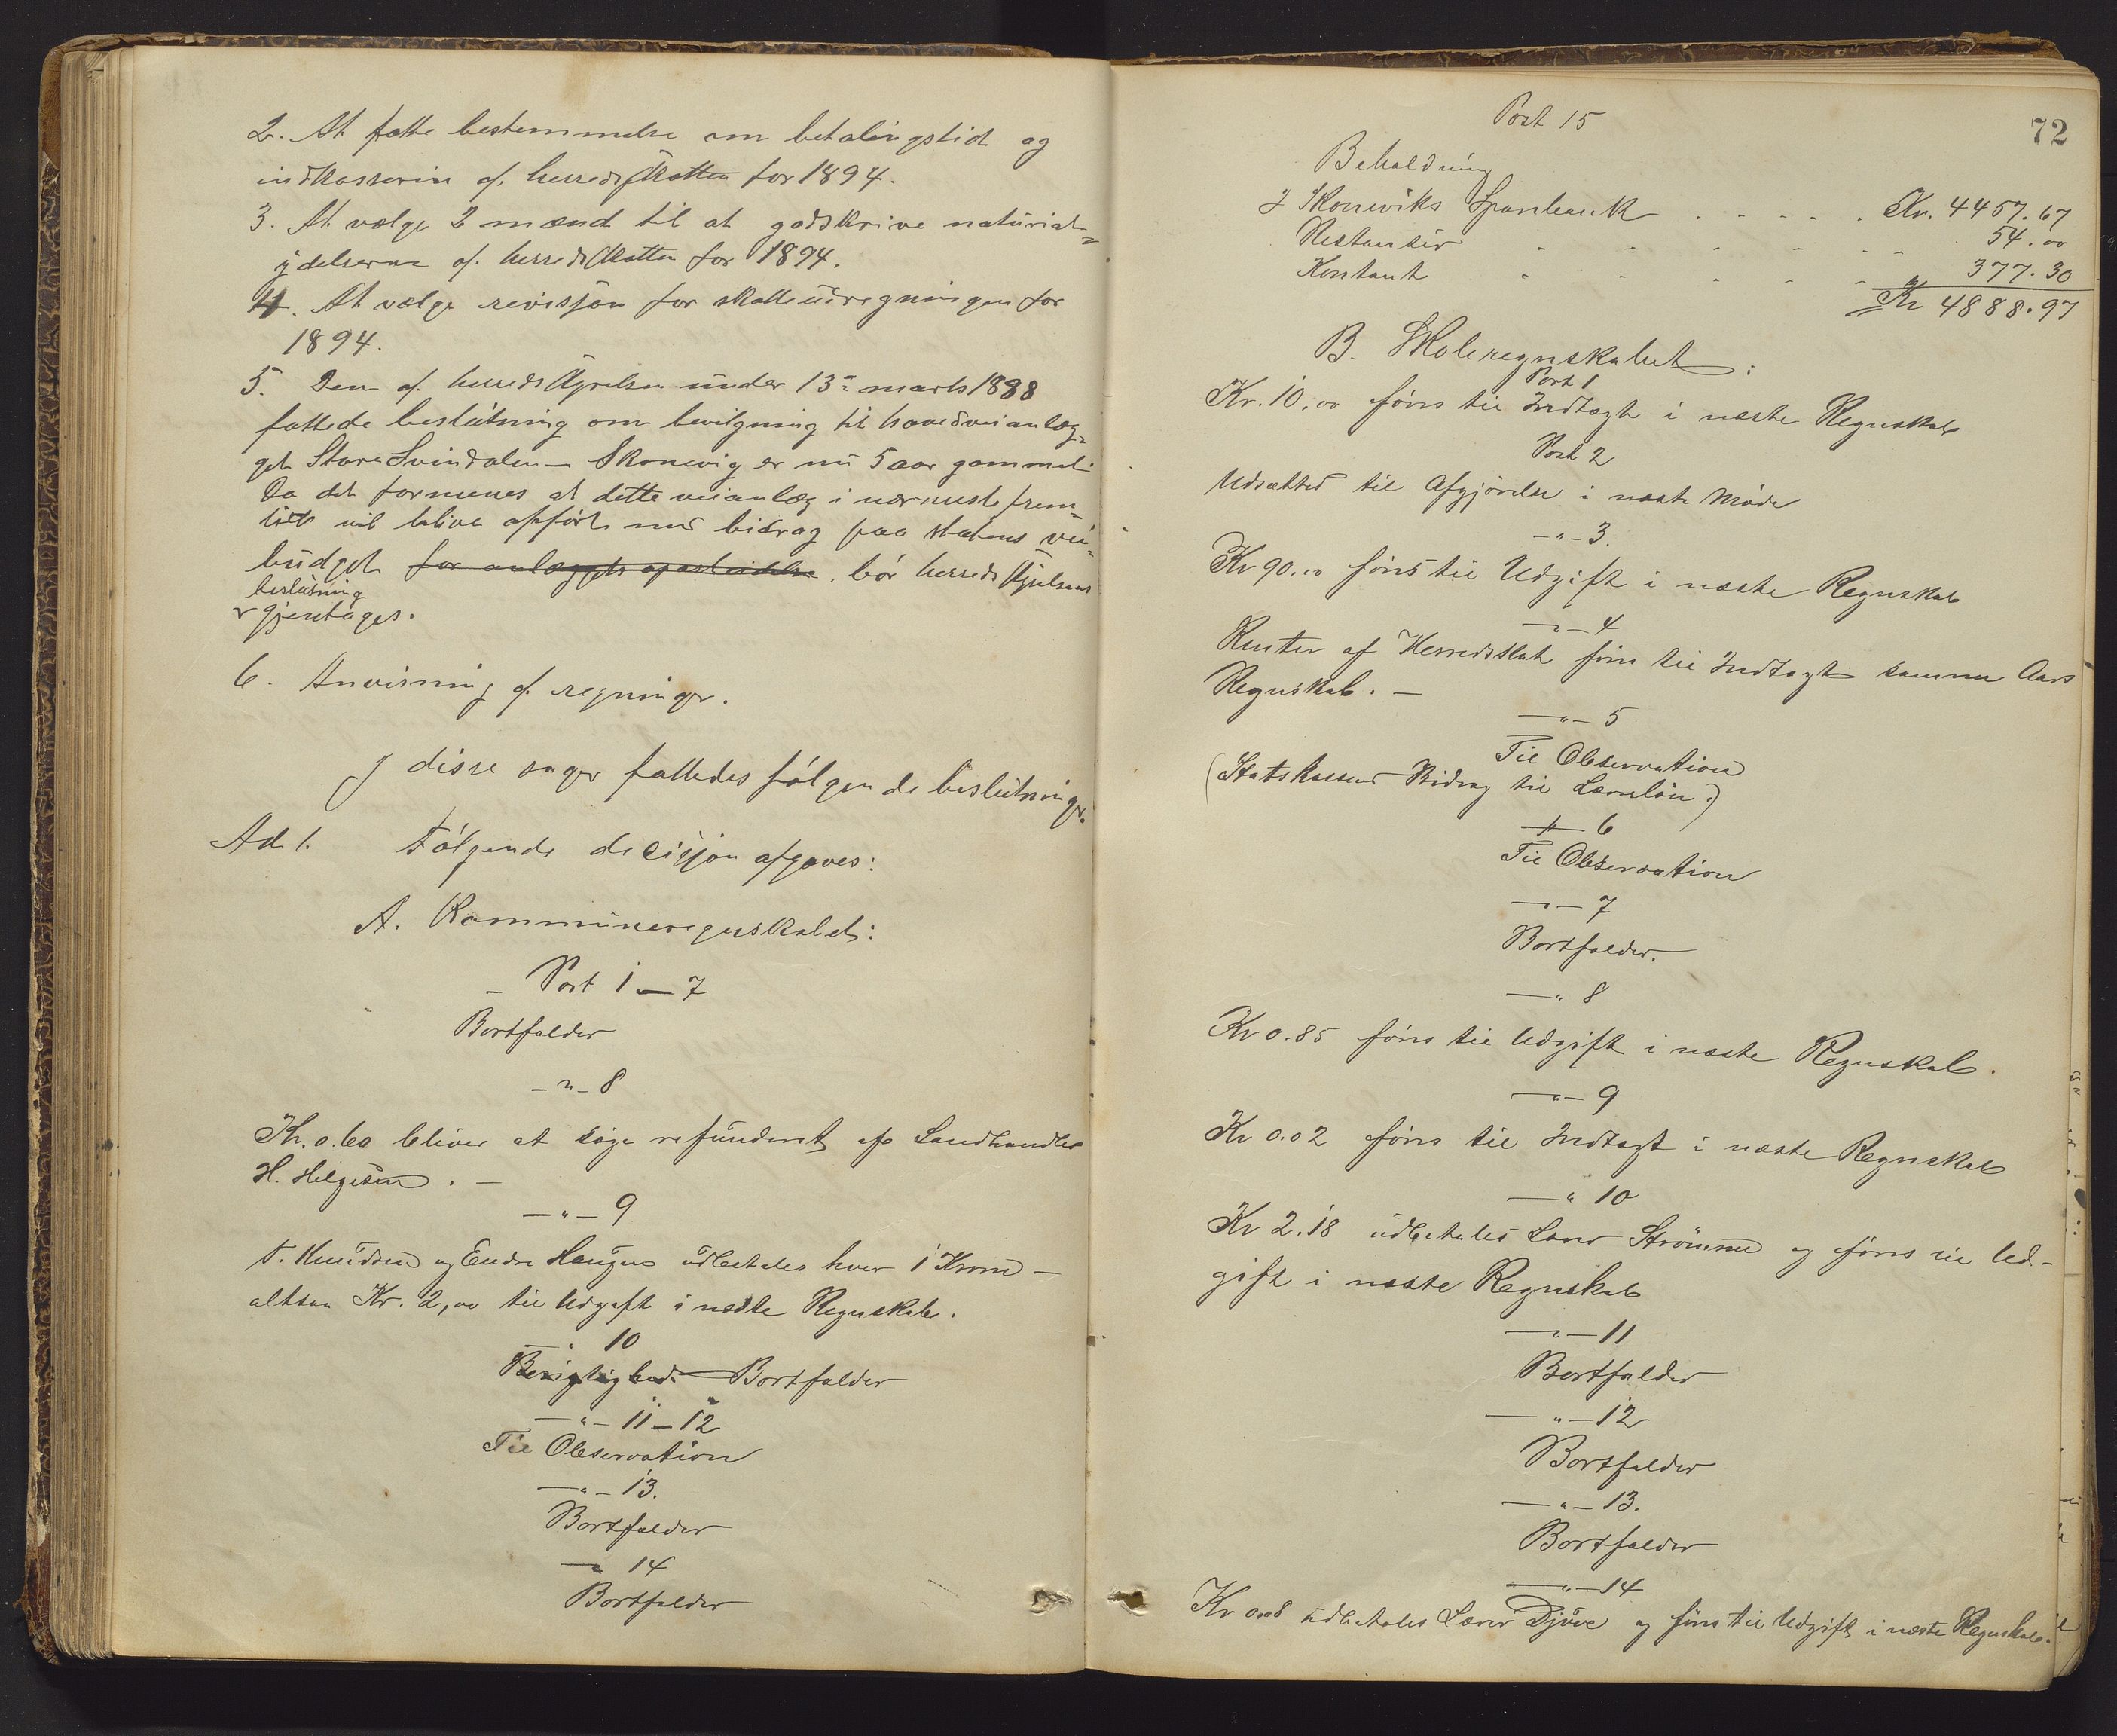 2. At fatte bestemmelse om betalingstid og
indkassering af herredsskatten for 1894.
3. At vælge 2 mænd til at godskrive naturial-
ydelserne af herredsskatten for 1894.
4. At vælge revisjon for skatteudregningen for
1894.
5. Den af herredsstyrelsen under 13de marts 1888
fattede beslutning om bevilgning til hovedveianlæg-
get Store Svindalen – Skonevig er nu 5 aar gammel.
Da det formenes at dette veianlæg i nærmeste frem-
tid vil blive opført med bidrag paa statens vei-
budget for anlæggets oparbeidelse, bør herredsstyrelsens
beslutning
gjentages.
6. Anvisning af regninger.
I disse sager fattedes følgende beslutninger.
Ad 1. Følgende decisjon afgaves:
A. Kommuneregnskabet:
Post 1 – 7
Bortfalder
– " – 8
Kr. 0.60 bliver at søge refunderet af Landhandler
H. Helgesen. –
– " – 9
T. Knudsen og Endre Haugen udbetales hver 1 Krone –
altsaa Kr. 2,00 til Udgift i næste Regnskab.
– " 10
Bortfalder
– " – 11 – 12
Til Observation
– " – 13.
Bortfalder
– " 14
Bortfalder
72
Post 15
Beholdning
I Skoneviks Sparebank . . . . . Kr. 4457.67
Restanser - - - - - 54.00
Kontant - - - - - 377.30
Kr 4888.97
B. Skoleregnskabet:
Post 1
Kr. 10.00 føres til Indtægt i næste Regnskab
Post 2
Udsættes til Afgjørelse i næste Møde
– " – 3.
Kr 90.00 føres til Udgift i næste Regnskab
– " – 4
Renter af Herredsskat føres til Indtægt samme Aars
Regnskab. –
– " – 5
Til Observation
(Statskassens Bidrag til Lærerløn.)
– " – 6
Til Observation
– " – 7
Bortfalder.
– " 8
Kr 0.85 føres til Udgift i næste Regnskab.
– " – 9
Kr 0.02 føres til Indtægt i næste Regnskab
– " 10
Kr 2.18 udbetales Lærer Strømme og føres til Ud-
gift i næste Regnskab
– " – 11
Bortfalder
– " – 12
Bortfalder
– " – 13.
Bortfalder
– " – 14
Kr 0.08 udbetales Lærer Djuve og føres til Udgift i næste Regnskab.